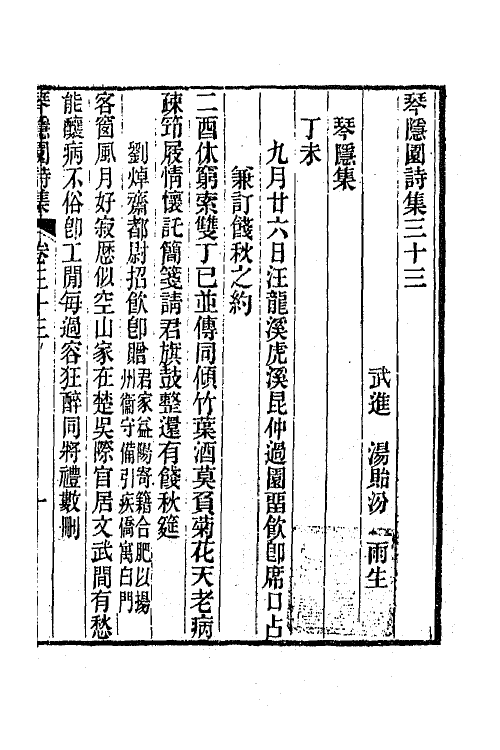 琴隱園詩集三十三
武進 湯貽汾 雨生
琴隱集
丁未
九月廿六日汪龍溪虎溪昆仲過園畱飲卽席口占
兼訂餞秋之約
二酉休窮索雙丁已並傳同傾竹葉酒莫負菊花天老病
疎筇屐情懷託簡箋請君旗鼓整還有餞秋筵
劉焯齋都尉招飲卽贈君家益陽寄籍合肥以揚
州衞守備引疾僑寓白門
客窗風月好寂歷似空山家在楚吳際官居文武間有愁
能釀病不俗卽工閒每過容狂醉同將禮數刪
琴隱園詩集 卷三十三 一